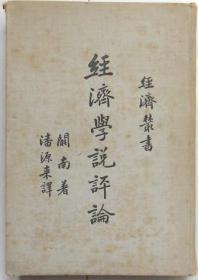 經濟叢書
經濟學說評論
閩南著
潘源来譯